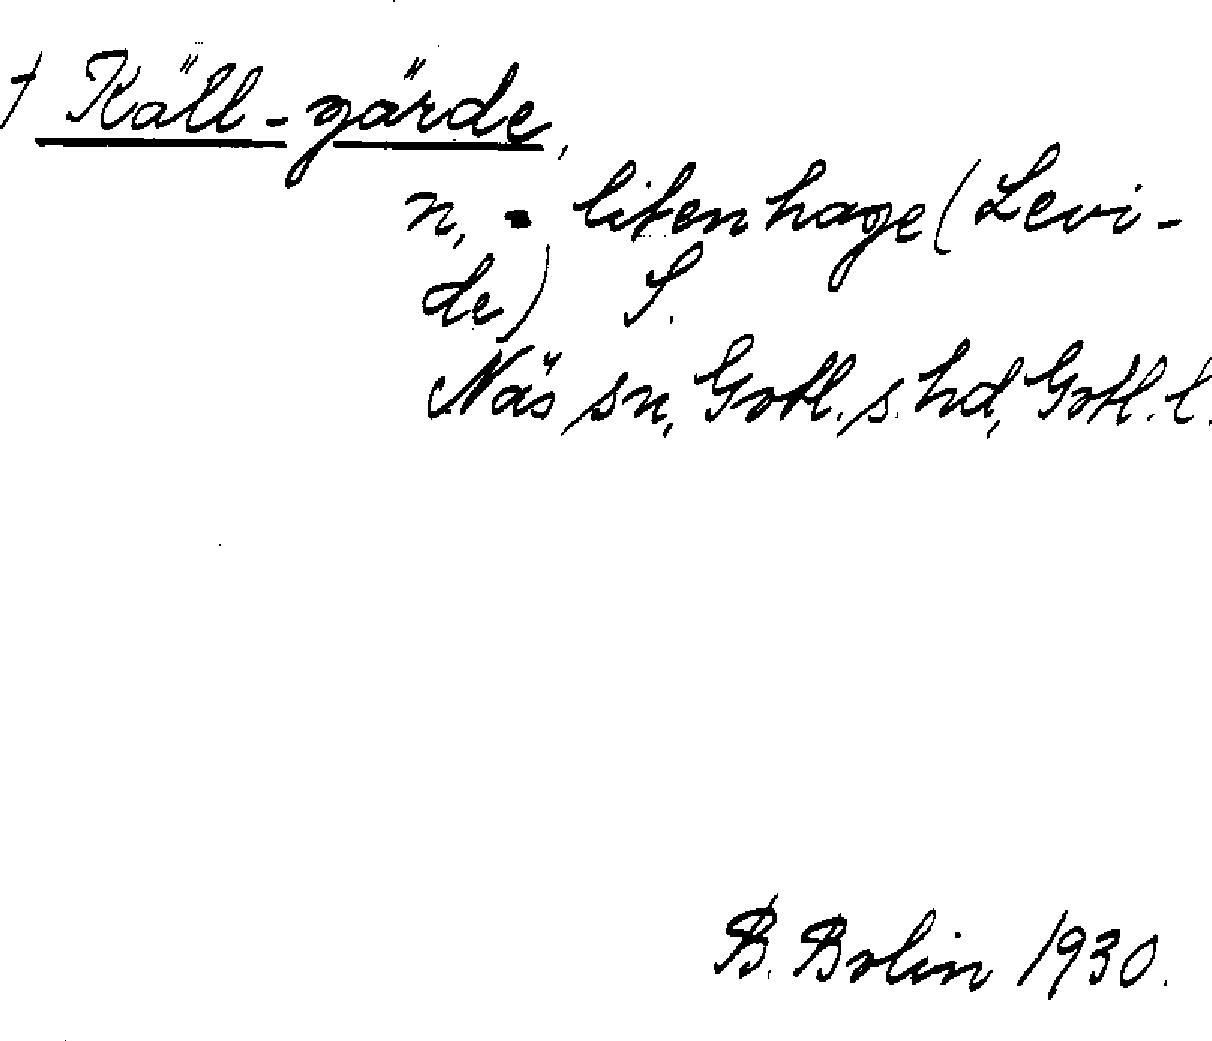 † Käll-gärde,
n, - liten hage (Levi-
de) S.
Näs sn, Gotl. s. hd, Gotl. l.
B. Bolin 1930.